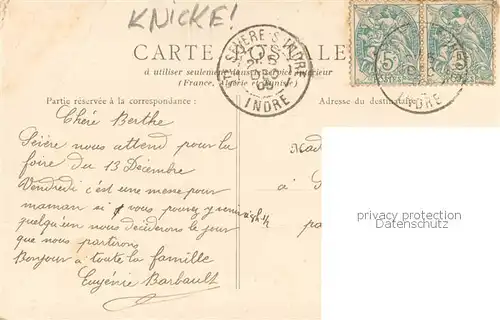 KNICKE!
CARTE
à utiliser seulement dans le service intérieur
(France, Algérie et Tunisie)
Partie réservée à la correspondance:
Adresse du destinataire
STE SEVERE-S-INDRE
INDRE
INDRE
Chère Berthe
Sévère nous attend pour la
foire du 13 Décembre
Vendredi c'est une messe pour
maman si vous pouvez y venir à 8h 1/2
quelqu'un nous deciderons le jour
que nous partirons
Bonjour à toute la famille
Eugénie Barbault
à
privacy protection
Datenschutz